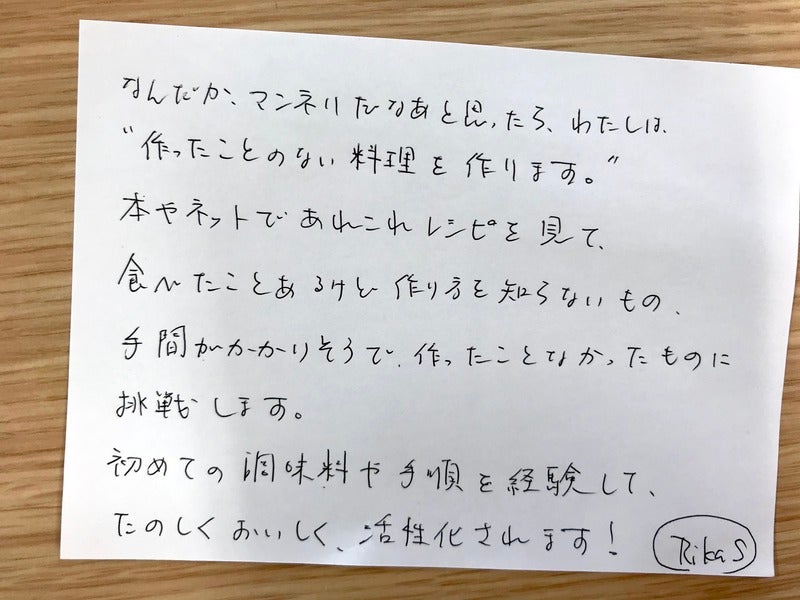 なんだか、マンネリだなあと思ったら、わたしは、
"作ったことのない料理を作ります。"
本やネットであれこれレシピを見て、
食べたことあるけど作り方を知らないもの、
手間がかかりそうで、作ったことなかったものに
挑戦します。
初めての調味料や手順を経験して、
たのしくおいしく、活性化されます!
Rika S